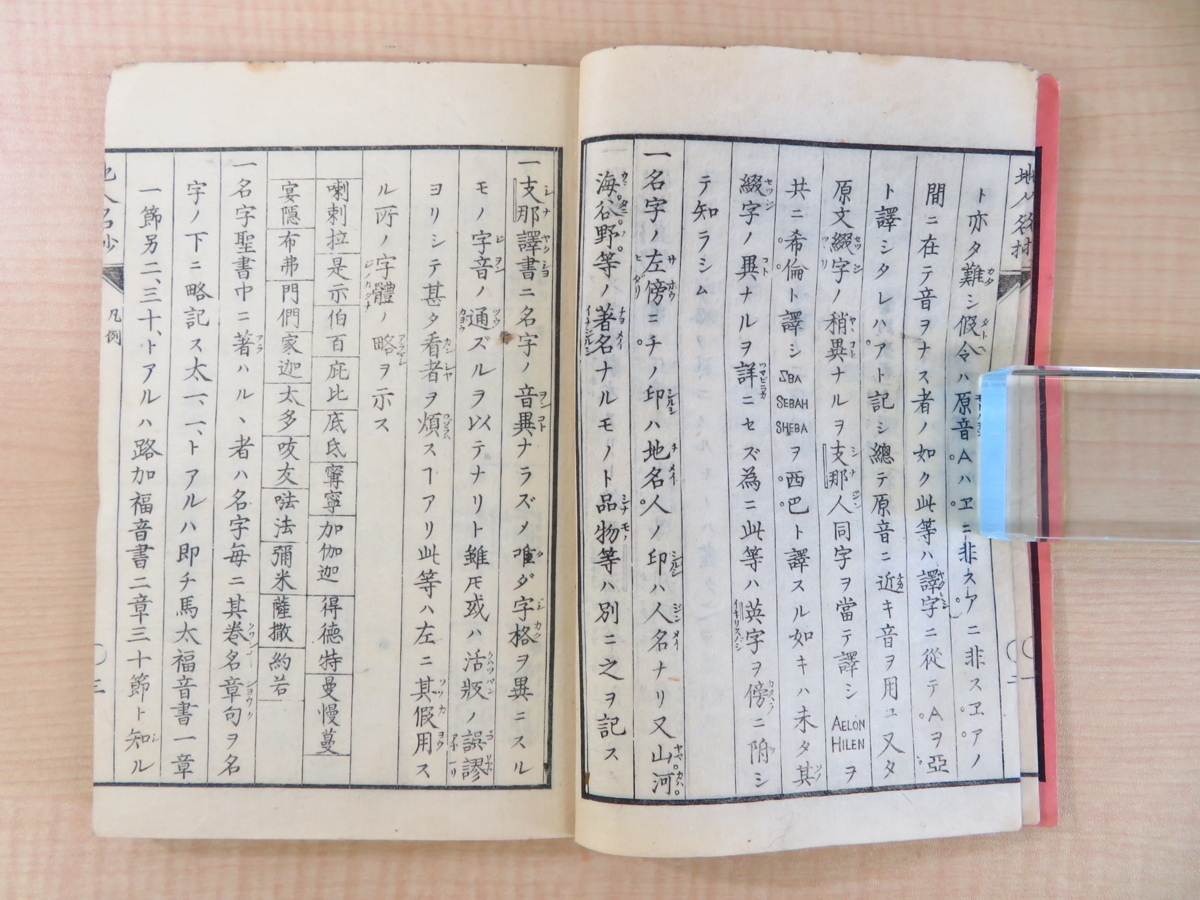 ト亦タ難シ假令ハ原音Aハヱニ非ズアニ非スヱアノ
間ニ在テ音ヲナス者ノ如ク此等ハ譯字ニ從テAヲ亞
ト譯シタレハアト記シ總テ原音ニ近キ音ヲ用ユ又タ
原文綴字ノ稍異ナルヲ支那人同字ヲ當テ譯シ AELON HILEN ヲ
共ニ希倫ト譯シ SBA SEBAH SHEBA ヲ西巴ト譯スル如キハ未タ其
綴字ノ異ナルヲ詳ニセズ為ニ此等ハ英字ヲ傍ニ附シ
テ知ラシム
一名字ノ左傍ニチノ印ハ地名人ノ印ハ人名ナリ又山河
海谷野等ノ著名ナルモノト品物等ハ別ニ之ヲ記ス
凡例
一支那譯書ニ名字ノ音異ナラズメ唯ダ字格ヲ異ニスル
モノ字音ノ通ズルヲ以テナリト雖モ或ハ活版ノ誤謬
ヨリシテ甚タ看者ヲ煩スヿアリ此等ハ左ニ其假用ス
ル所ノ字體ノ略ヲ示ス
喇剌拉 是示 伯百 庇比 底氐 寗寧 加伽迦 得德特 曼慢蔓
宴隱 布弗 門們 家迦 太多 咬友 㗲法 彌米 薩撒 約若
一名字聖書中ニ著ハルヽ者ハ名字毎ニ其巻名章句ヲ名
字ノ下ニ略記ス太一、一、トアルハ即チ馬太福音書一章
一節另二、三十、トアルハ路加福音書二章三十節ト知ル